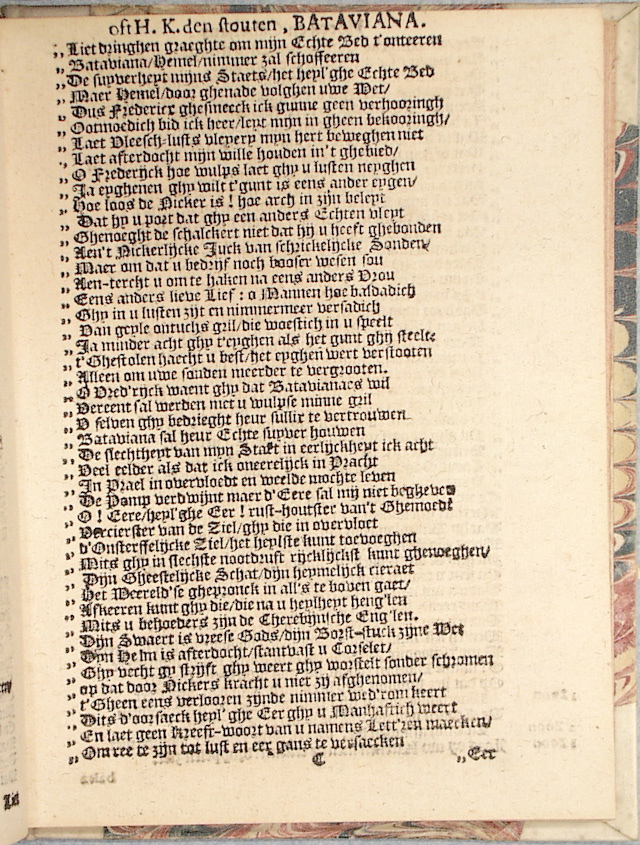 oft H. K. den stouten, BATAVIANA.
„ Liet dringhen graeghte om mijn Echte Bed t'onteeren
„ Bataviana/Hemel/nimmer zal schoffeeren
„ De suyverheyt mijns Staets/het heyl'ghe Echte Bed
„ Maer Hemel/door ghenade volghen uwe Wet/
„ Dus Frederick ghesmeeck ick gunne geen verhooringh
„ Ootmoedich bid ick heer/leyt mijn in gheen bekooringh/
„ Laet Vleesch-lusts vleyery mijn hert beweghen niet
„ Laet afterdocht mijn wille houden in't ghebied/
„ O Frederijck hoe wulps laet ghy u lusten neyghen
„ Ja eyghenen ghy wilt t'gunt is eens ander eygen/
„ Hoe loos de Nicker is! hoe arch in zijn beleyt
„ Dat hy u port dat ghy een anders Echten vleyt
„ Ghenoeght de schalckert niet dat hy u heeft ghebonden
„ Aen't Nickerlijcke Juck van schrickelijcke Sonden/
„ Maer om dat u bedrijf noch booser wesen sou
„ Aen-tercht u om te haken na eens anders Vrou
„ Eens anders lieve Lief: o Mannen hoe baldadich
„ Ghy in u lusten zijt en nimmermeer versadich
„ Van geyle ontuchs gril/die woestich in u speelt
„ Ja minder acht ghy t'eyghen als het gunt ghy steelt:
„ t'Ghestolen haecht u best/het eyghen wert verstooten
„ Alleen om uwe sonden meerder te vergrooten.
„ O Vred'rijck waent ghy dat Batavianaes wil
„ Vereent sal werden met u wulpse minne gril
„ V selven ghy bedrieght heur sullix te vertrouwen
„ Bataviana sal heur Echte suyver houwen
„ De slechtheyt van mijn Staet in eerlijckheyt ick acht
„ Veel eelder als dat ick oneerelijck in Pracht
„ In Prael in overvloedt en weelde mochte leven
„ De Pomp verdwijnt maer d'Eere sal mij niet begheven
„ O! Eere/heyl'ghe Eer! rust-houtster van't Ghemoedt
„ Vercierster van de Ziel/ghy die in overvloet
„ d'Onsterffelijcke Ziel/het heylste kunt toevoeghen
„ Mits ghy in slechste nootdruft rijcklijckst kunt ghenoeghen/
„ Dijn Gheestelijcke Schat/dijn heymelijck cieraet
„ Het Weereld'se ghepronck in all's te boven gaet/
„ Afkeeren kunt ghy die/die na u heylheyt heng'len
„ Mits u behoeders zijn de Cherebijnsche Eng'len.
„ Dijn Swaert is vreese Gods/dijn Borst-stuck zijne Wet
„ Dijn Helm is afterdocht/stantvast u Corselet/
„ Ghy vecht gy strijft ghy weert ghy worstelt sonder schromen
„ op dat door Nickers kracht u niet zy afghenomen/
„ t'Gheen eens verlooren zynde nimmer wed'rom keert
„ Dits d'oorsaeck heyl'ghe Eer ghy u Manhaftich weert
„ En laet geen Kreeft-woort van u namens Lett'ren maecken/
„ Om ree te zijn tot lust en eer gans te versaecken
C „ Eer